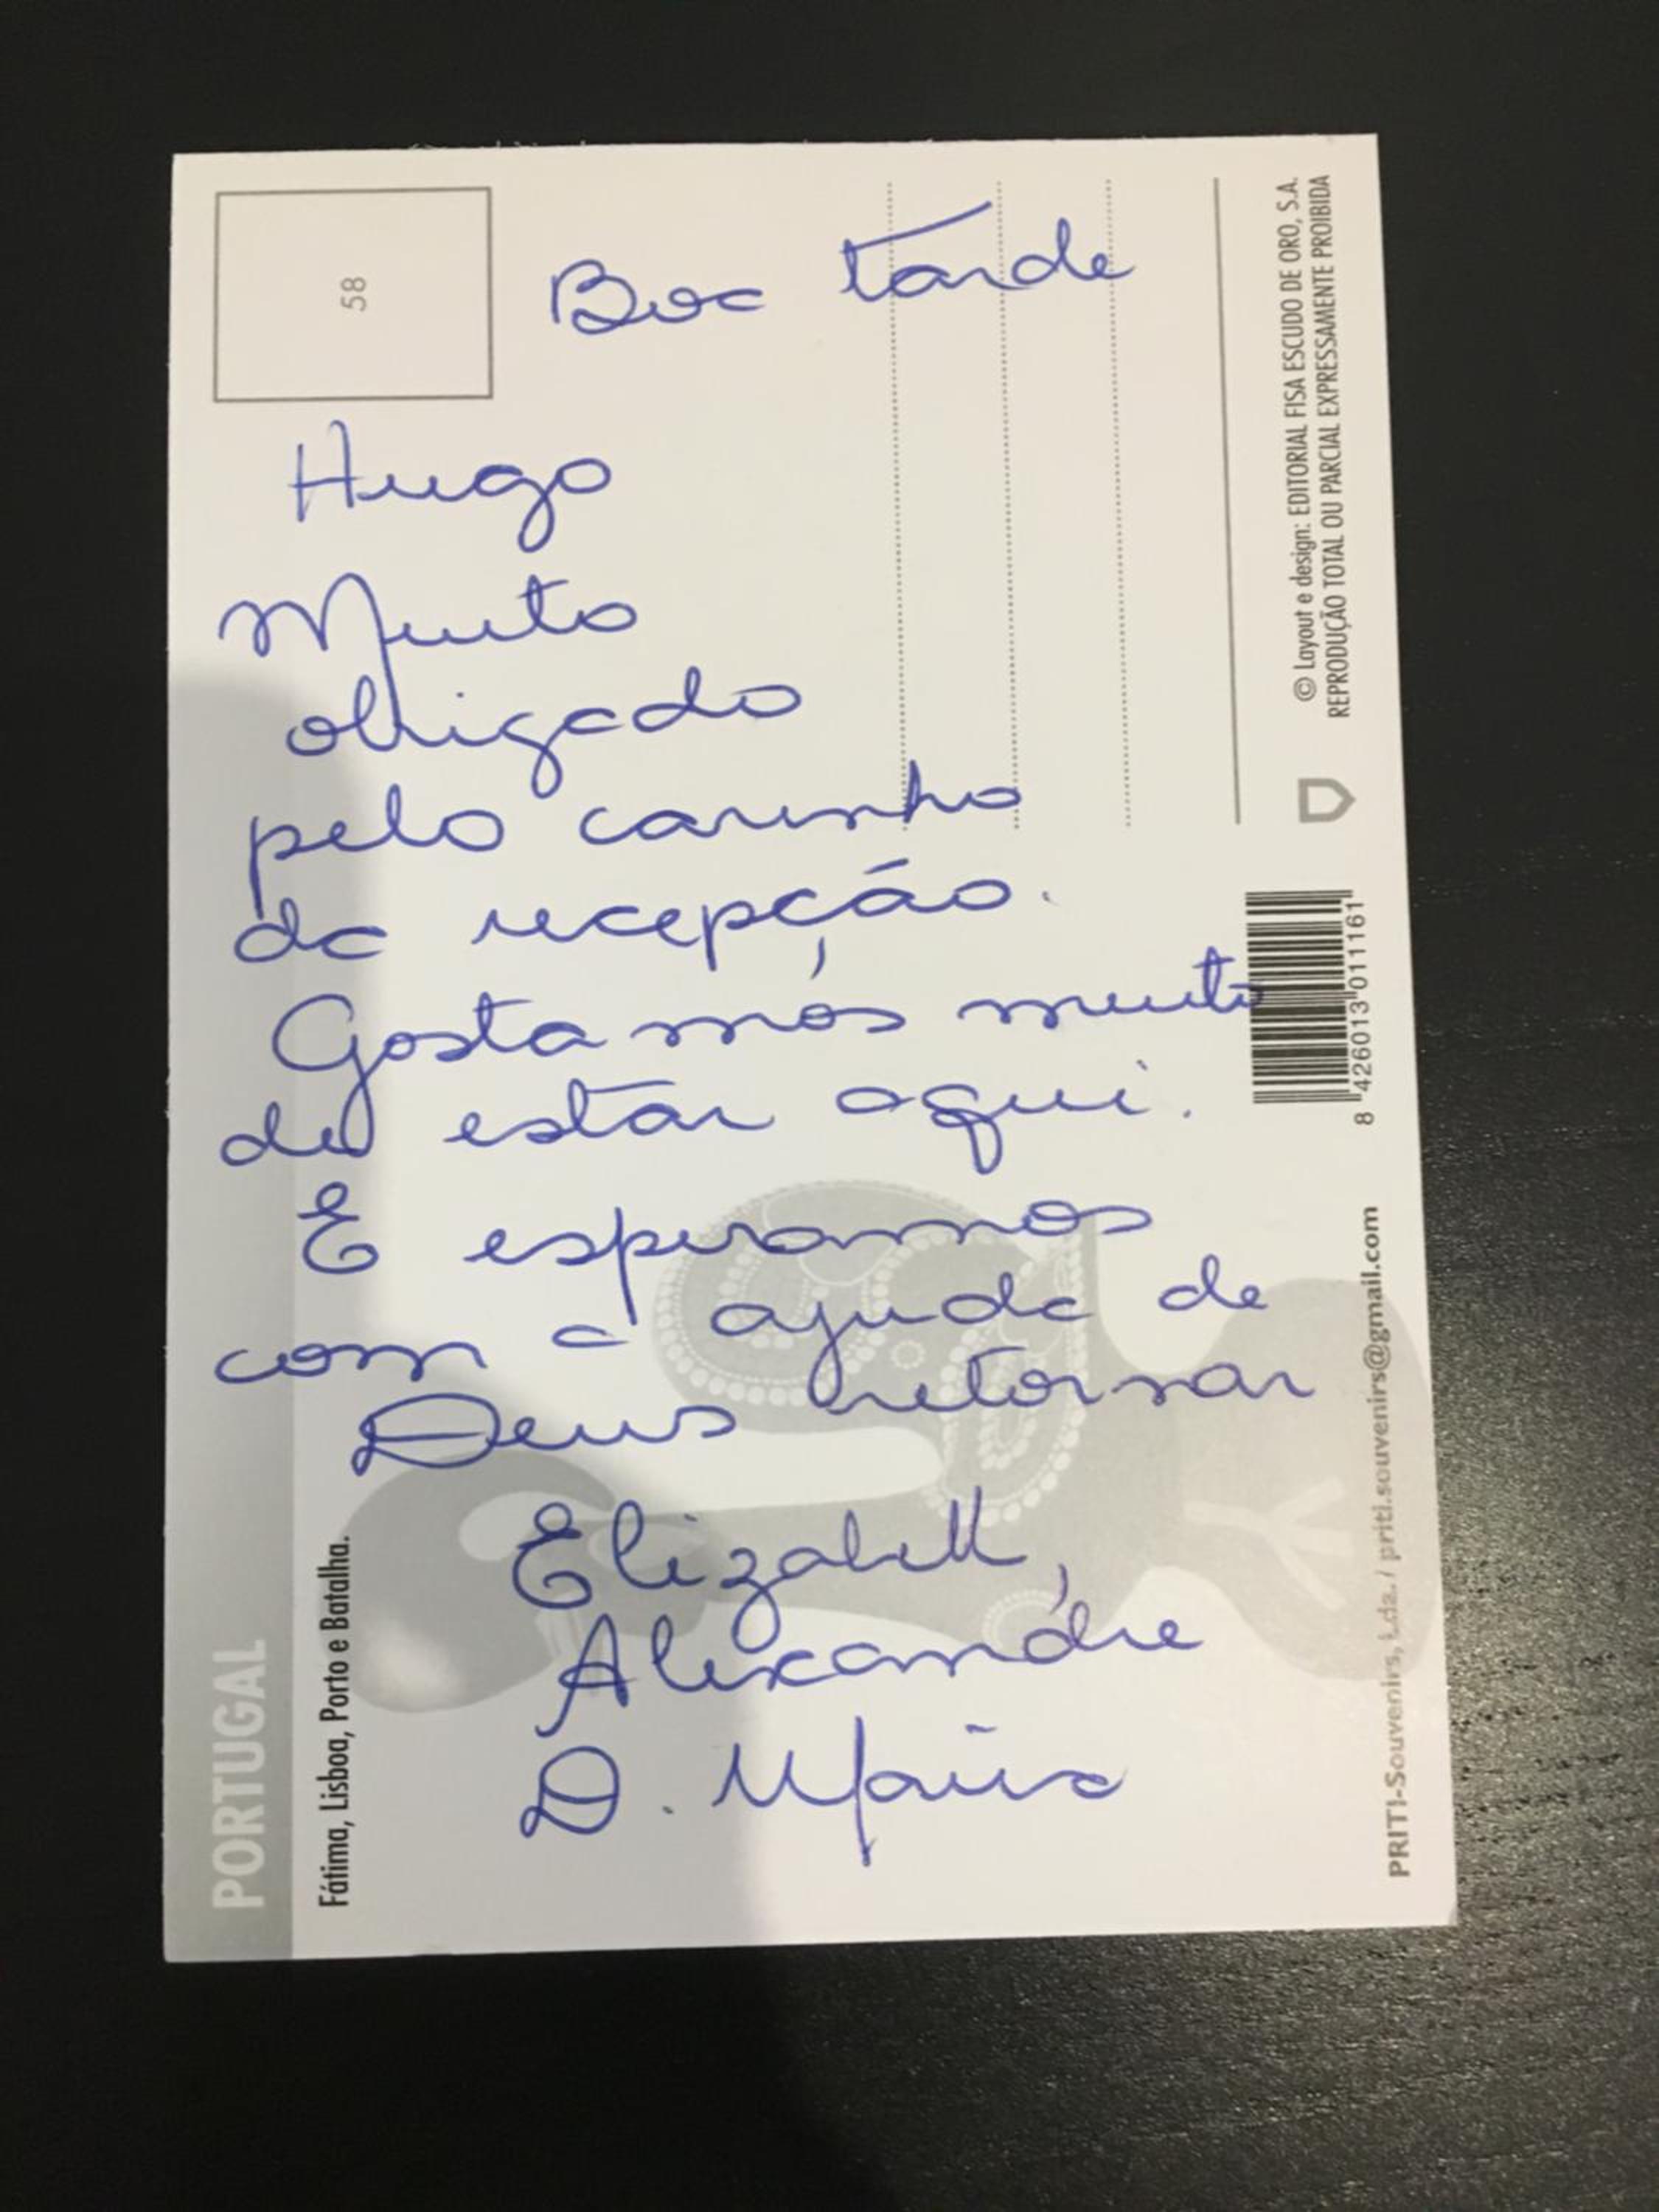 Boa tarde
Hugo
Muito
obrigado
pelo carinho
da recepção.
Gostamos muito
de estar aqui.
E esperamos
com a ajuda de
Deus retornar
Elizabeth,
Alexandre
D. Maria
58
PORTUGAL
Fátima, Lisboa, Porto e Batalha.
© Layout e design: EDITORIAL FISA ESCUDO DE ORO, S.A.
REPRODUÇÃO TOTAL OU PARCIAL EXPRESSAMENTE PROIBIDA
8 426013 011161
PRITI-Souvenirs, Lda. / priti.souvenirs@gmail.com